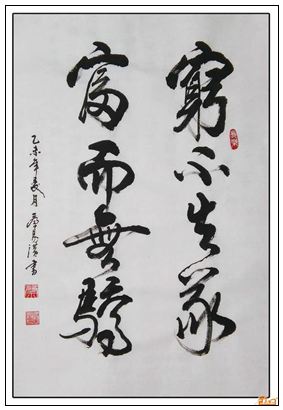 窮不失義
富而無驕
乙未年夏月
書